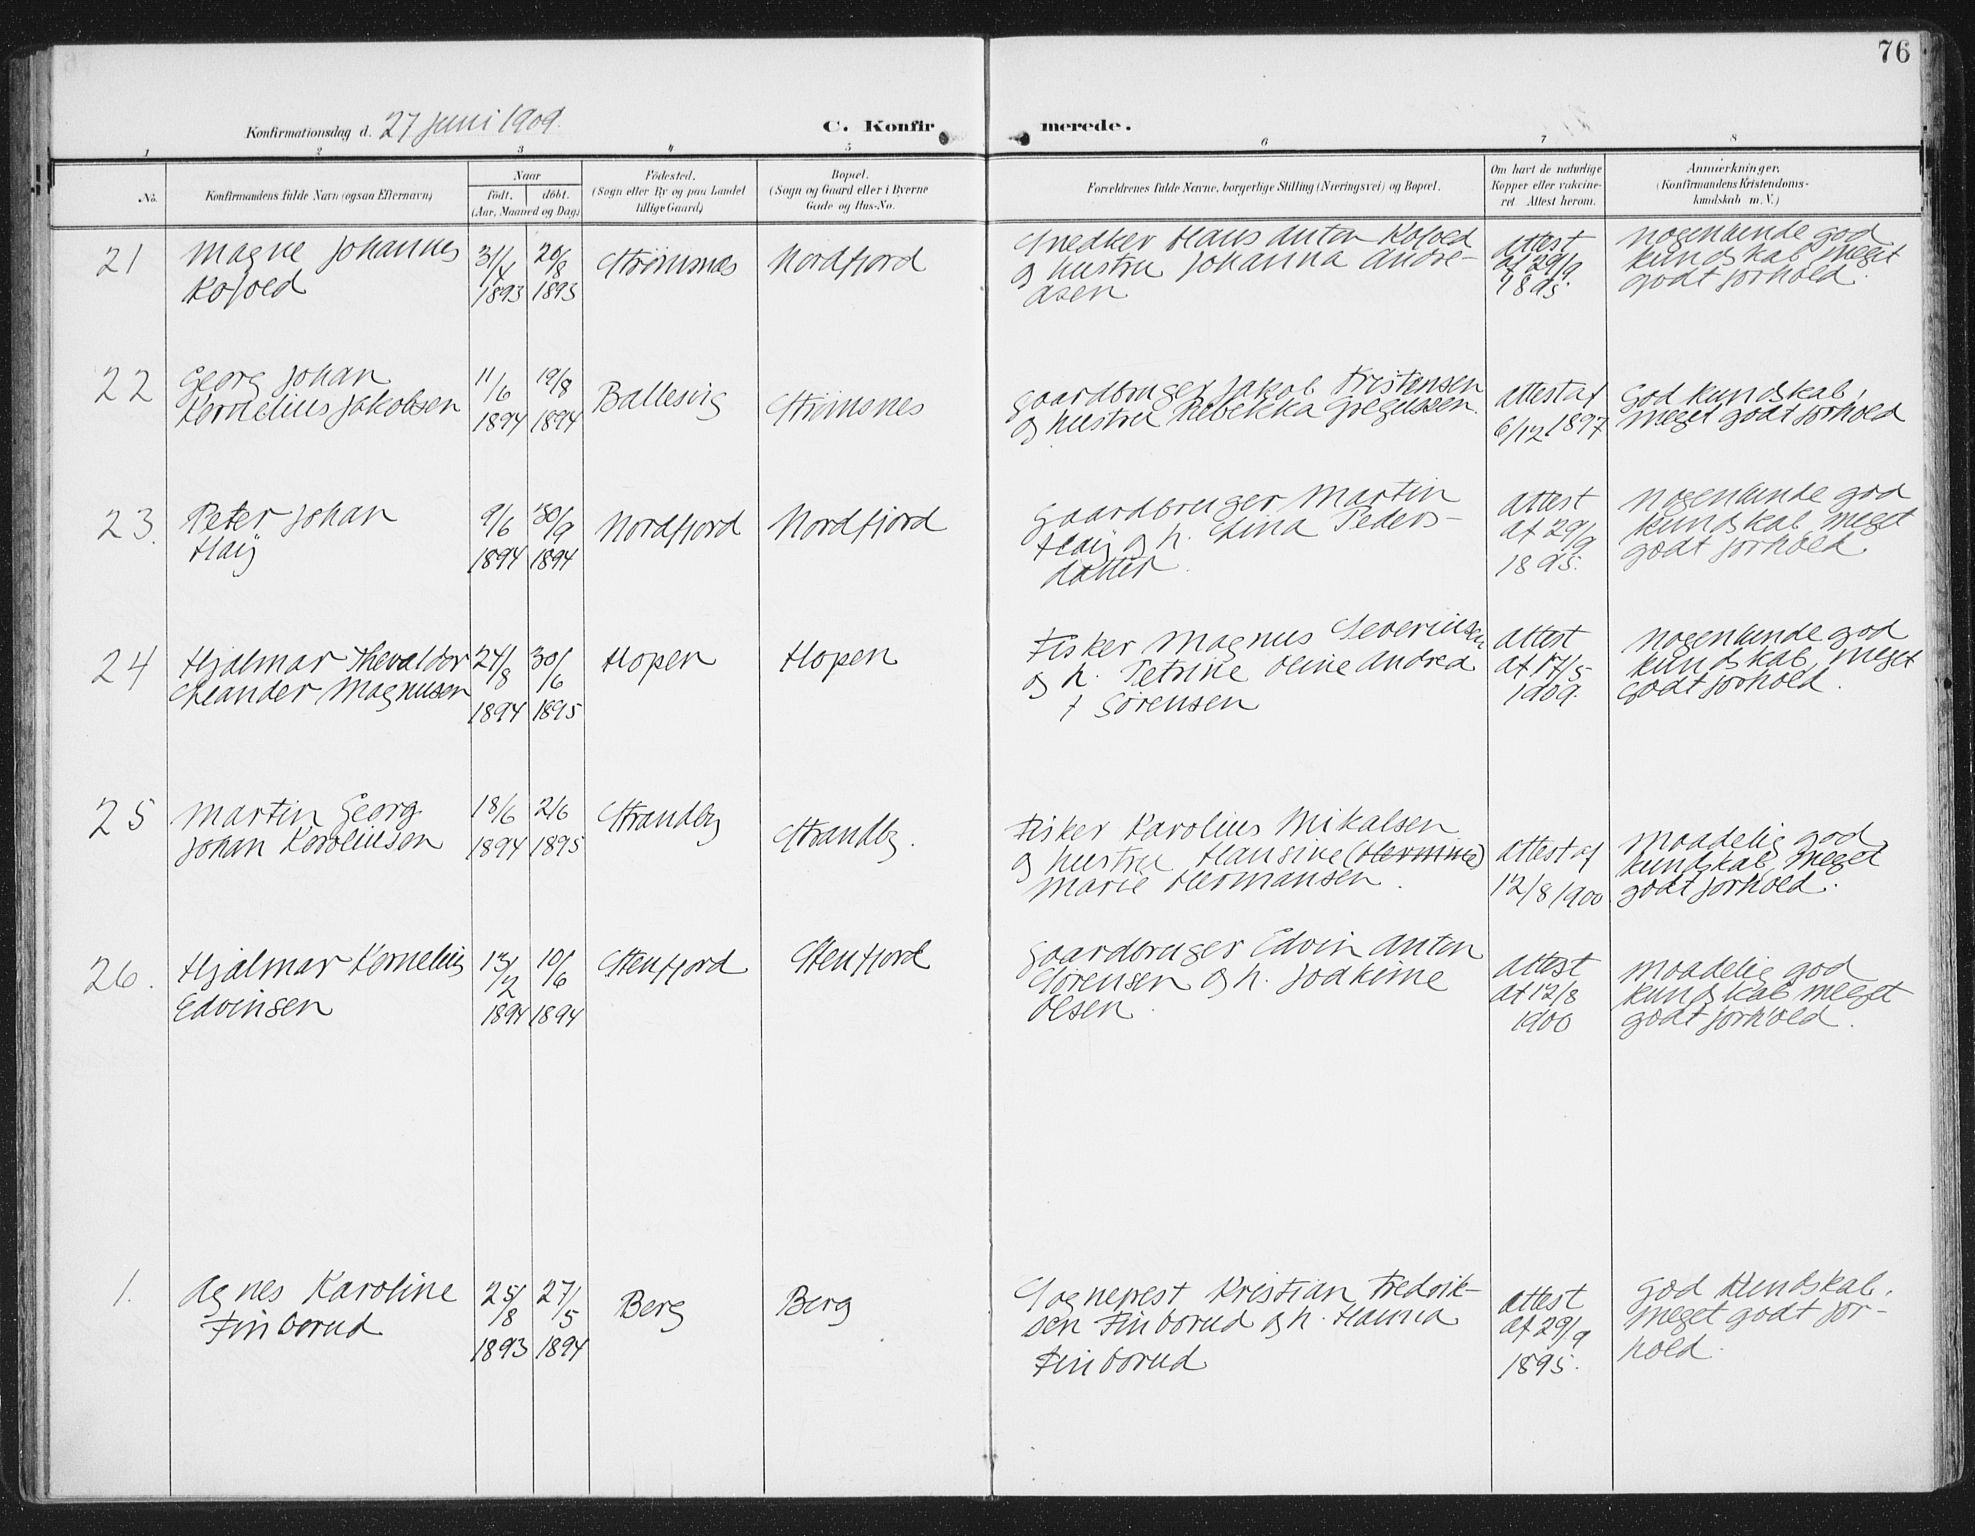 76
Konfirmationsdag d. 27 juni 1909.
C. Konfirmerede.
1 2 3 4 5 6 7 8
No.
Konfirmandens fulde Navn (ogsaa Efternavn)
Naar
født. döbt.
(Aar, Maaned og Dag)
Födested.
(Sogn eller By og paa Landet
tillige Gaard)
Bopæl.
(Sogn og Gaard eller i Byerne
Gade og Hus-No.
Forældrenes fulde Navne, borgerlige Stilling (Næringsvei) og Bopæl.
Om havt de naturlige
Kopper eller vakcine-
ret. Attest herom.
Anmærkninger.
(Konfirmandens Kristendoms-
kundskab m. V.)
21 Magne Johannes 20/8 Strømsnes Nordfjord
Kofoed
1893 1893
Snedker Hans Anton Kofoed
og hustru Johanna Andre-
asen
Attest
af 29/9
1895
nogenlunde god
kundskab meget
godt forhold.
22 Georg Johan 11/6 19/8 Ballesvig Strømsnes
Kornelius Jakobsen 1894 1894
gaardbruger Jakob Kristensen
og hustru Rebekka Gregussen.
attest af
6/12 1897
God kundskab,
meget godt forhold
23. Peter Johan 9/6 30/9 Nordfjord Nordfjord
Haij
1894 1894
Gaardbruger Martin
Haij og h. Lina Peders-
datter.
Attest
af 29/9
1895.
nogenlunde god
kundskab, meget
godt forhold.
24 Hjalmar Thevaldor 24/8 30/6 Hopen Hopen
Leander Magnusen
1894 1895
Fisker Magnus Severinsen
og h. Petrine Oline Andrea
f Sørensen
Attest
af 17/5
1909.
nogenlunde god
kundskab, meget
godt forhold.
25 Martin Georg 18/6 2/6 Strandby Strandby.
Johan Karoliusen 1894 1895
Fisker Karolius Mikalsen
og hustru Hansine (Hermine)
Marie Hermansen.
Attest af
12/8 1900
Maadelig god
kundskab, meget
godt forhold.
26. Hjalmar Kornelius 13/2 10/6 Stenfjord Stenfjord
Edvinsen 1894 1894
Gaardbruger Edvin Anton
Sørensen og h. Jodkime
Olsen.
Attest
af 12/8
1900
Maadelig god
kundskab meget
godt forhold.
1. Agnes Karoline 25/8 27/5 Berg Berg
Finborud
1893 1894
Sogneprest Kristian Fredrik-
sen Finborud og h. Hanna
Finborud
Attest
af 29/9
1895.
God Kundskab.
Meget godt for-
hold.